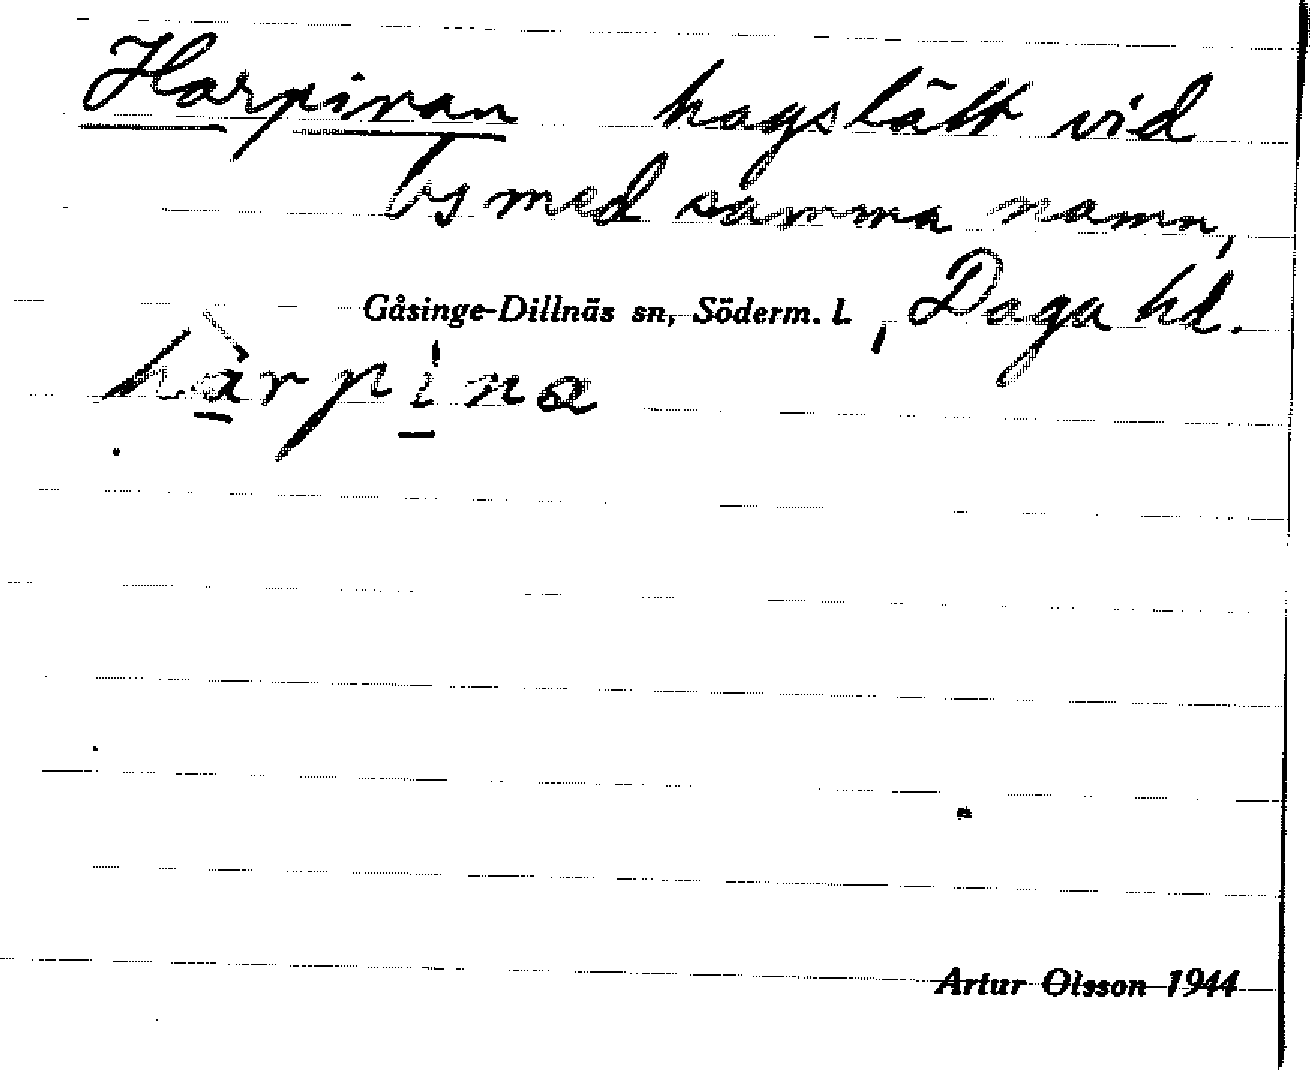 Harpinan hagslätt vid
bs med samma namn,
Gåsinge-Dillnäs sn, Söderm. l., Daga hd.
hàrpi̍na
Artur Olsson 1944